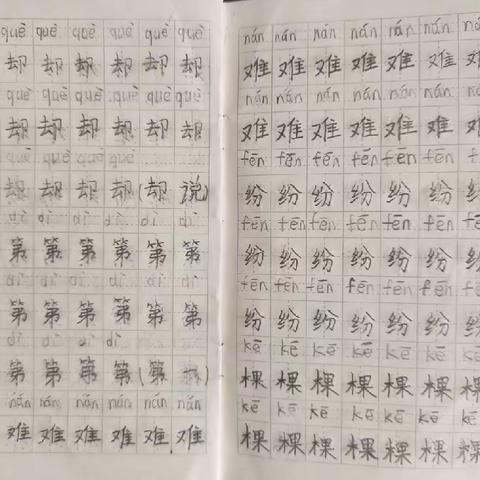 què què què què què què
却 却 却 却 却 却
què què què què què què
却 却 却 却 却 却
què què què què
却 却 却 却 却 说)
第 第 第 第 第 第
第 第 第 第 第 第
第 第 第 第 ( 第
nán nán nán nán nán nán
难 难 难 难 难 难
nán nán nán nán nán nán nán
难 难 难 难 难 难 难
nán nán nán nán nán nán nán
难 难 难 难 难 难 难
fēn fēn fēn fēn fēn fēn fēn
纷 纷 纷 纷 纷 纷 纷
fēn fēn fēn fēn fēn fēn fēn
纷 纷 纷 纷 纷 纷 纷
fēn fēn fēn fēn fēn fēn fēn
纷 纷 纷 纷 纷 纷 纷
kē kē kē kē kē kē kē
棵 棵 棵 棵 棵 棵 棵
kē kē kē kē kē kē kē
棵 棵 棵 棵 棵 棵 棵